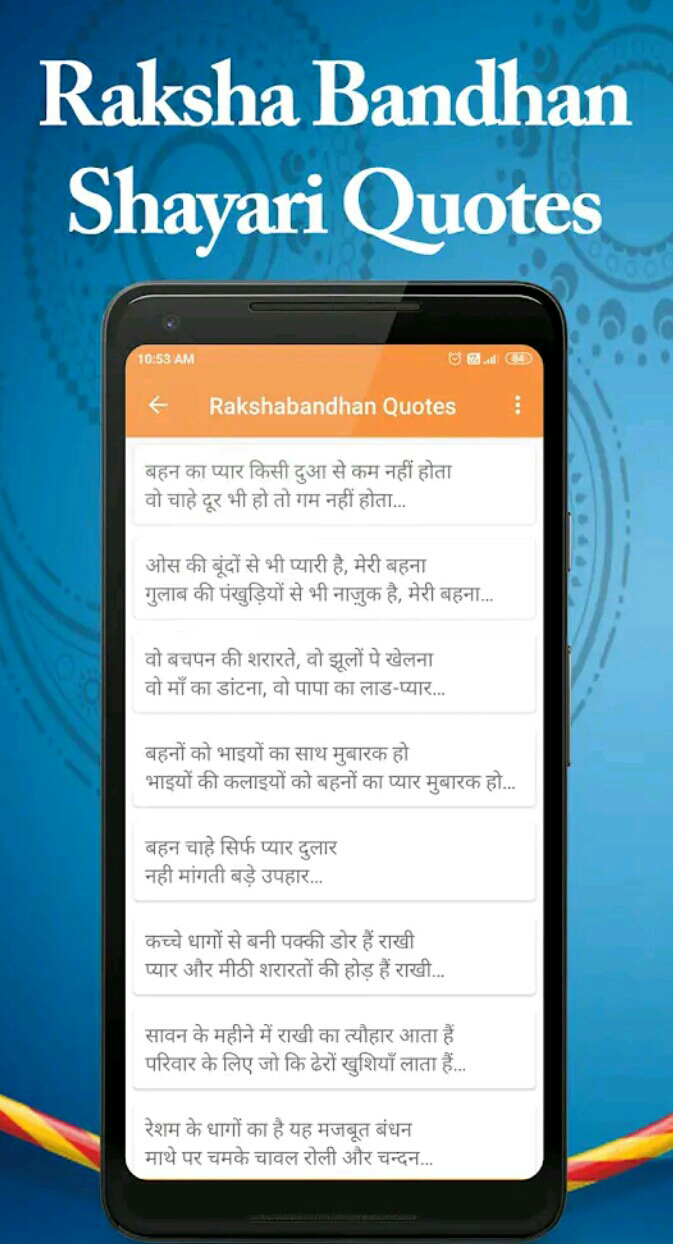 Raksha Bandhan
Shayari Quotes
10:53 AM
84
Rakshabandhan Quotes
बहन का प्यार किसी दुआ से कम नहीं होता
वो चाहे दूर भी हो तो गम नहीं होता...
ओस की बूंदों से भी प्यारी है, मेरी बहना
गुलाब की पंखुड़ियों से भी नाज़ुक है, मेरी बहना...
वो बचपन की शरारते, वो झूलों पे खेलना
वो माँ का डांटना, वो पापा का लाड-प्यार...
बहनों को भाइयों का साथ मुबारक हो
भाइयों की कलाइयों को बहनों का प्यार मुबारक हो...
बहन चाहे सिर्फ प्यार दुलार
नही मांगती बड़े उपहार...
कच्चे धागों से बनी पक्की डोर हैं राखी
प्यार और मीठी शरारतों की होड़ हैं राखी...
सावन के महीने में राखी का त्यौहार आता हैं
परिवार के लिए जो कि ढेरों खुशियाँ लाता हैं...
रेशम के धागों का है यह मजबूत बंधन
माथे पर चमके चावल रोली और चन्दन...